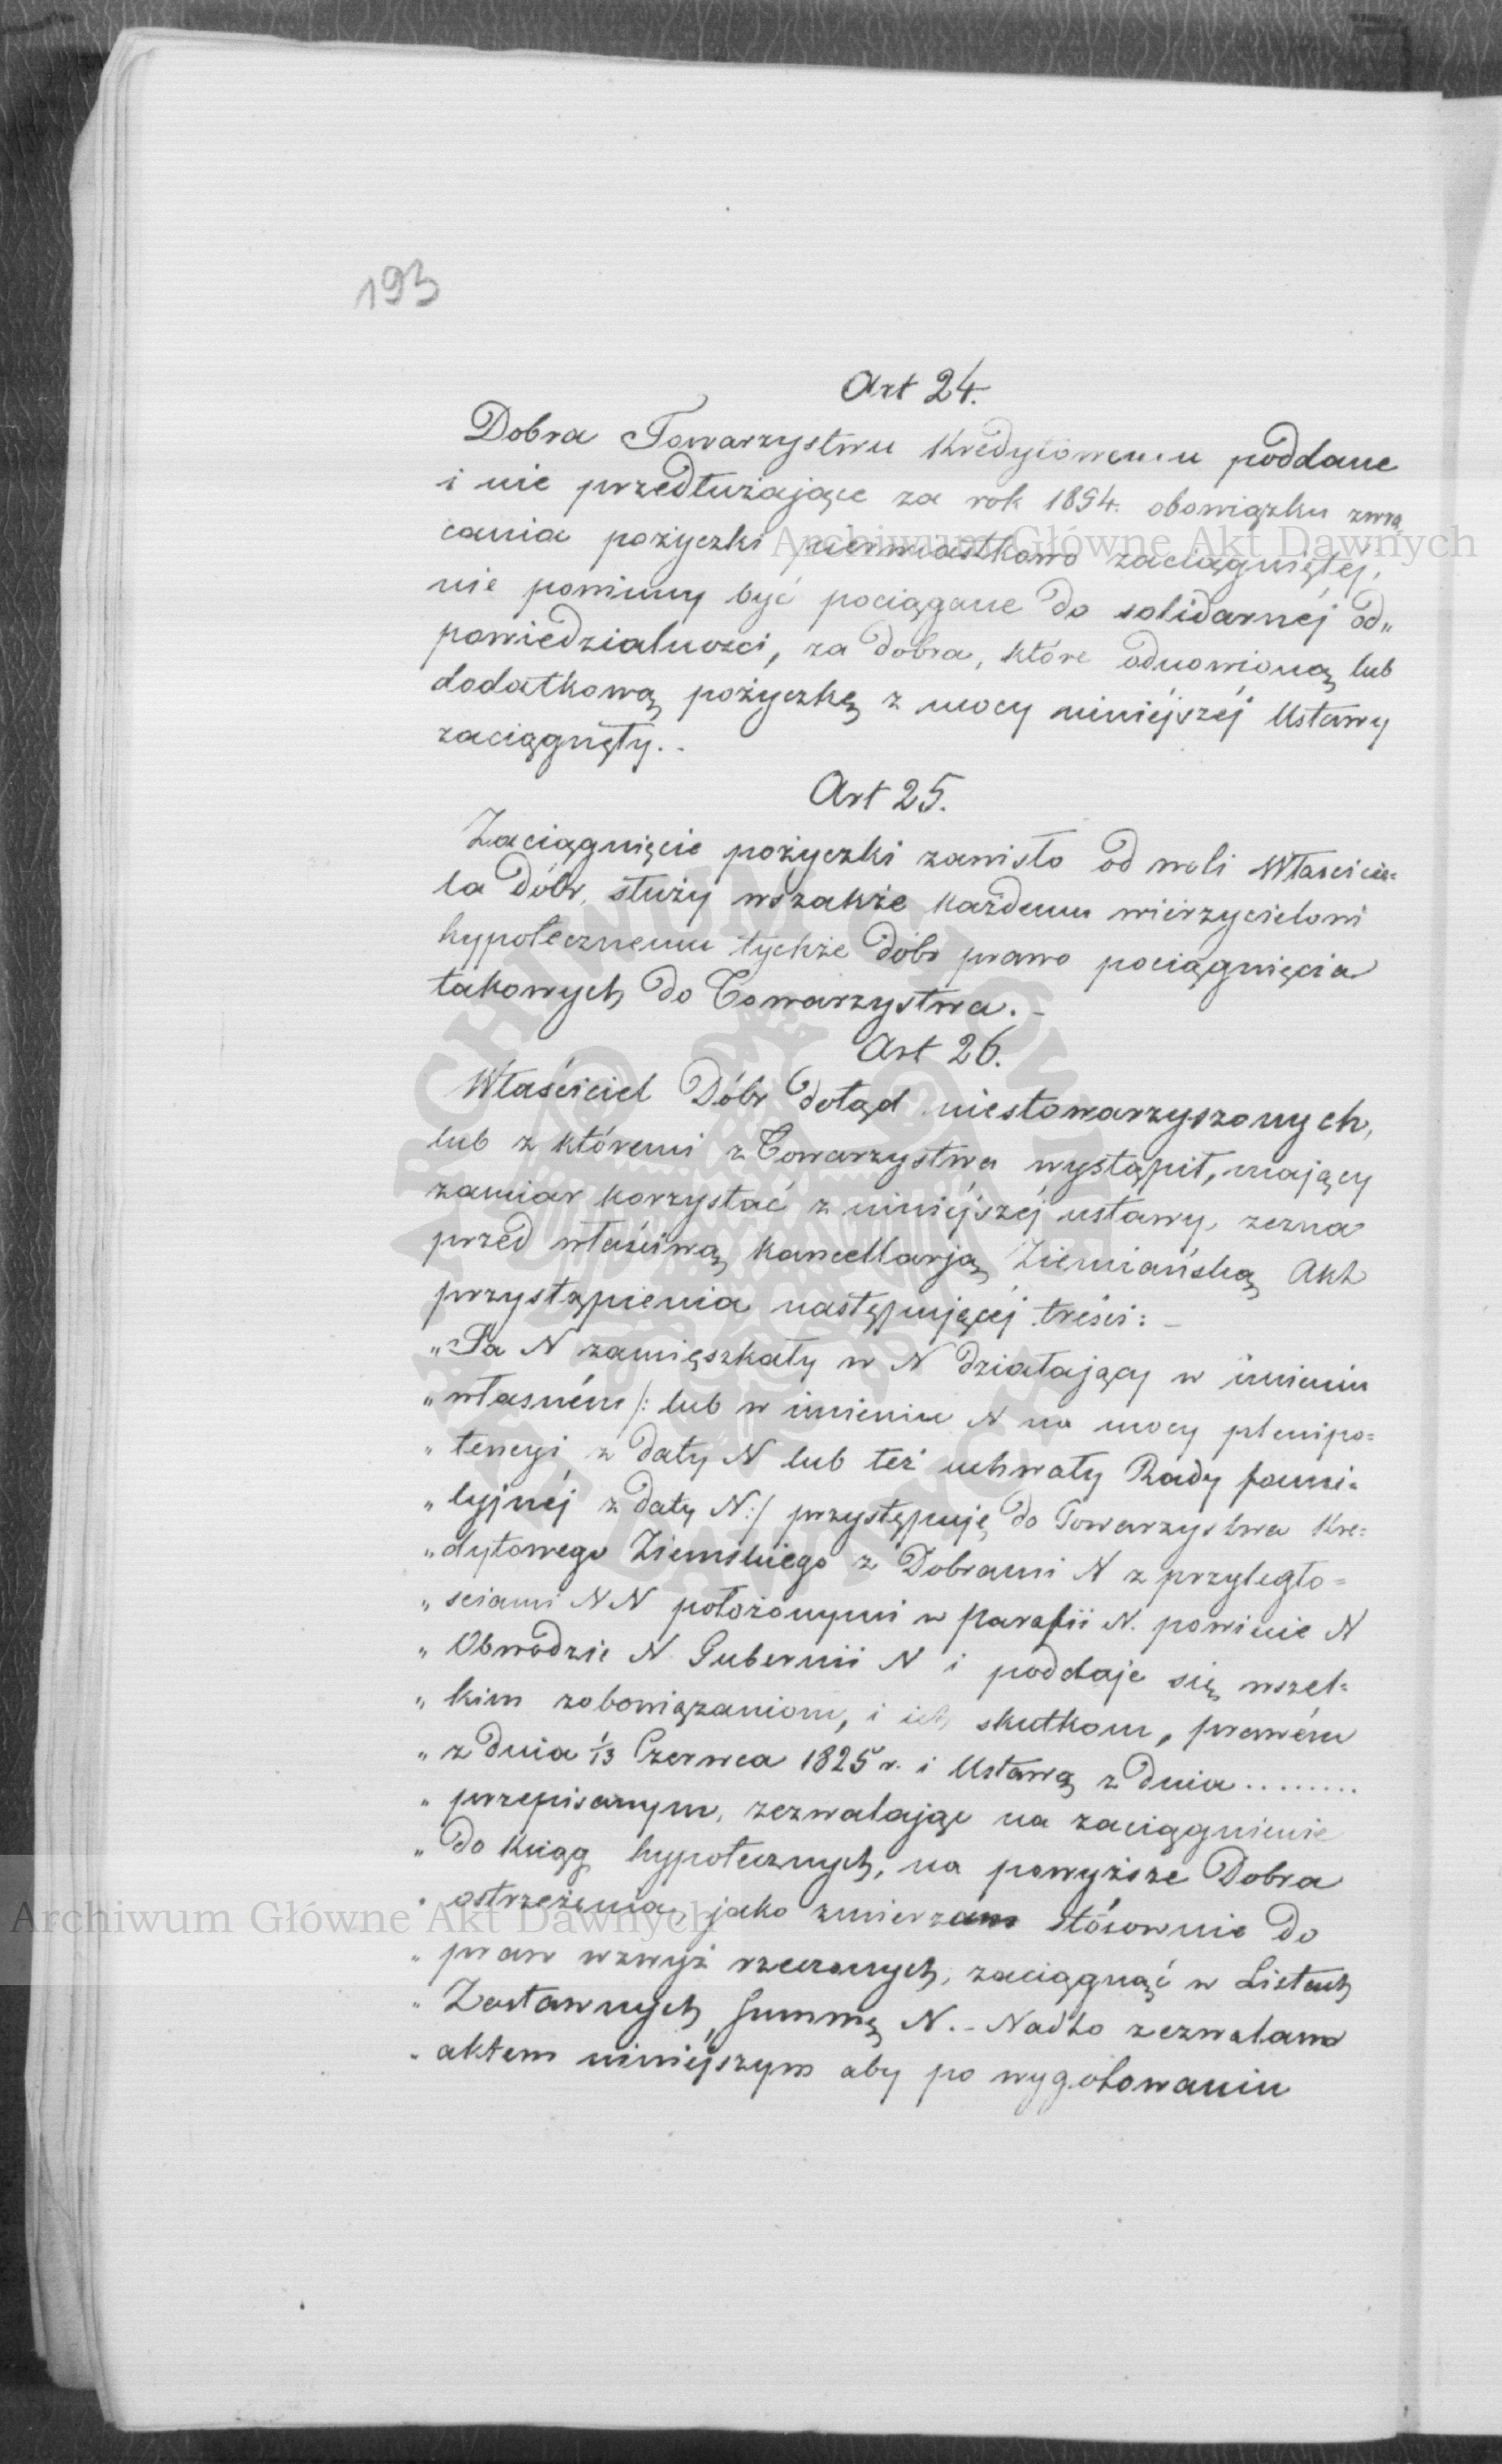 193
Art 24.
Dobra Towarzystwu Kredytowemu poddane
i nie przedłużające za rok 1854. obowiązku zwra
cania pożyczki pierwiastkowo zaciągniętéj,
nie powinny być pociągane do solidarnéj od„
powiedzialności, za dobra, które odnowioną lub
dodatkową pożyczkę z mocy niniéjszéj Ustawy
zaciągnęły..
Art 25.
Zaciągnięcie pożyczki zawisło od woli Właścicie=
la Dóbr, służy wszakże każdemu wierzycielowi
hypotecznemu tychże Dóbr prawo pociągnięcia
takowych do Towarzystwa. -
Art 26.
Właściciel Dóbr dotąd niestowarzyszonych,
lub z któremi z Towarzystwa wystąpił, mający
zamiar korzystać z niniéjszéj ustawy, zezna
przed właściwą kancellarją Ziemiańską Akt
przystąpienia następującéj treści: -
„Ja N zamięszkały w N działający w imieniu
„własném /: lub w imieniu N na mocy plenipo=
„tencyi z daty N lub też uchwały Rady fami=
„lyjnéj z daty N:/ przystępuję do Towarzystwa Kre=
„dytowego Ziemskiego z Dobrami N z przyległo=
„sciami NN położonymi w Parafii N. powiecie N
„Obwodzie N Gubernii N i poddaje się wszel=
„kim zobowiązaniom, i ich skutkom, prawém
„z dnia 1/13 Czerwca 1825 r. i Ustawą z dnia ........
„przepisanym, zezwalając na zaciągnienie
„Do Ksiąg hypotecznych, na powyższe Dobra
„ostrzeżenia, jako zmierzam stósownie Do
„praw wzwyż rzeczonych, zaciągnąć w Listach
„Zastawnych Summę N. - Nadto zezwalam
„aktem niniéjszym aby po wygotowaniu
Archiwum Główne Akt Dawnych
Archiwum Główne Akt Dawnych
ARCHIWUM GŁÓWNE AKT DAWNYCH